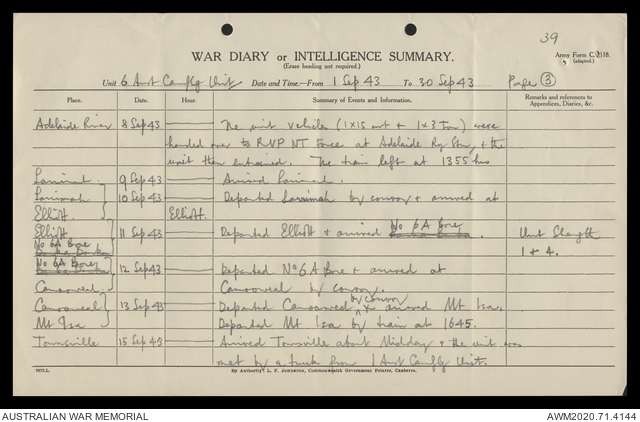 39
WAR DIARY or INTELLIGENCE SUMMARY.
(Erase heading not required.)
Army Form C.2118.
(adapted.)
Unit 6 Aust Camflg Unit Date and Time—From 1 Sep 43 To 30 Sep 43 Page 3
Place. Date. Hour. Summary of Events and Information. Remarks and references to Appendices, Diaries, &c.
Adelaide River 8 Sep 43 The unit vehicles (1x15 cwt + 1x3 Ton) were
handed over to RVP NT Force at Adelaide Ry Stn, & the
unit then entrained. The train left at 1355 hrs
Larrimah. 9 Sep 43 Arrived Larrimah.
Larrimah 10 Sep 43 Departed Larrimah by convoy & arrived at
Elliott. Elliott.
Elliott 11 Sep 43 Departed Elliott & arrived No 6A Bore Unit Strength
No 6A Bore 1 & 4.
No 6A Bore 12 Sep 43 Departed No 6A Bore & arrived at
Camooweal. Camooweal by convoy.
Camooweal 13 Sep 43 Departed Camooweal by convoy & arrived Mt Isa.
Mt Isa Departed Mt Isa by train at 1645.
Townsville 15 Sep 43 Arrived Townsville about Midday & the unit was
met by a truck from 1 Aust Camflg Unit.
By Authority: L. F. Johnston, Commonwealth Government Printer, Canberra.
AUSTRALIAN WAR MEMORIAL AWM2020.71.4144